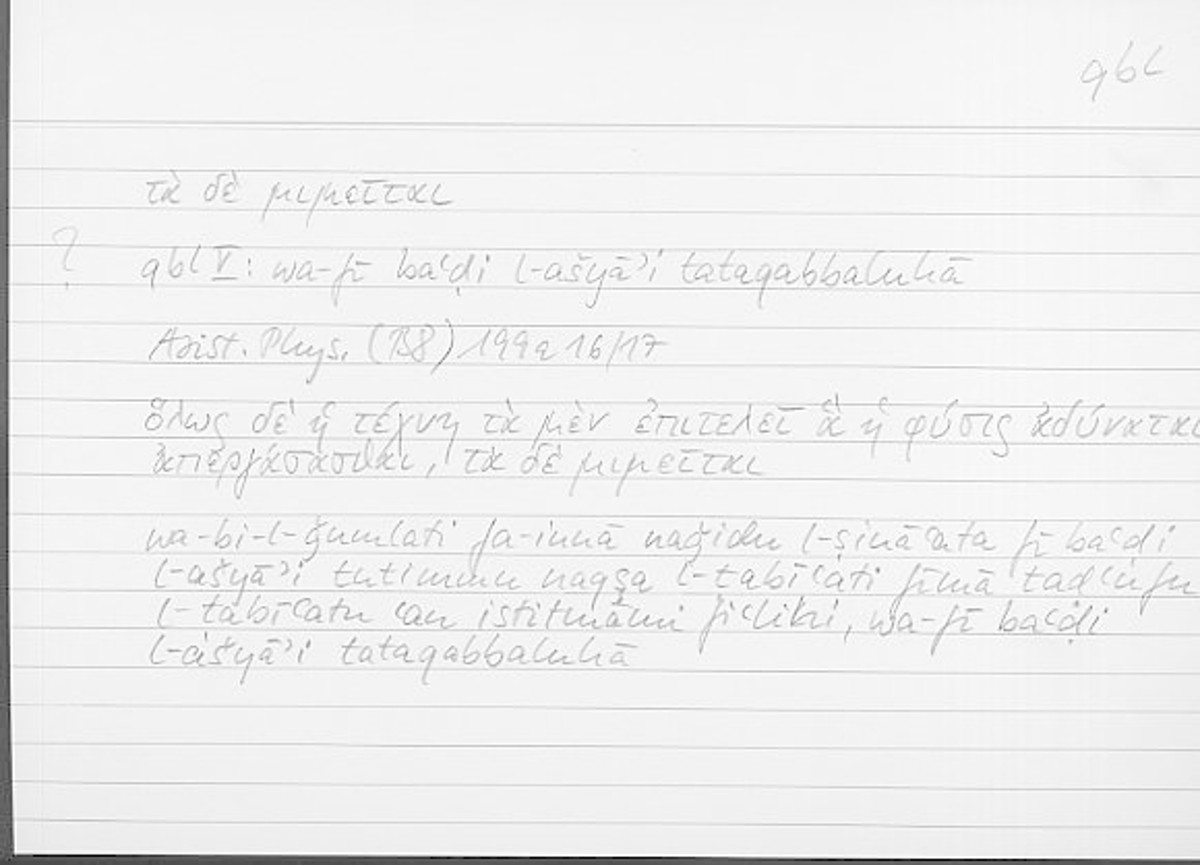 qbl
τὰ δὲ μιμεῖται
? qbl V: wa-fī baʿḍi l-ašyāʾi tataqabbaluhā
Arist. Phys. (B8) 199a 16/17
ὅλως δὲ ἡ τέχνη τὰ μὲν ἐπιτελεῖ ἃ ἡ φύσις ἀδύνατει
ἀπεργάσασθαι, τὰ δὲ μιμεῖται
wa-bi-l-ǧumlati fa-innā naǧidu l-ṣināʿata fī baʿḍi
l-ašyāʾi tutimmu naqṣa l-tabīʿati fīmā tadʿufu
l-tabīʿatu ʿan istitmāmi fiʿlihi, wa-fī baʿḍi
l-ašyāʾi tataqabbaluhā